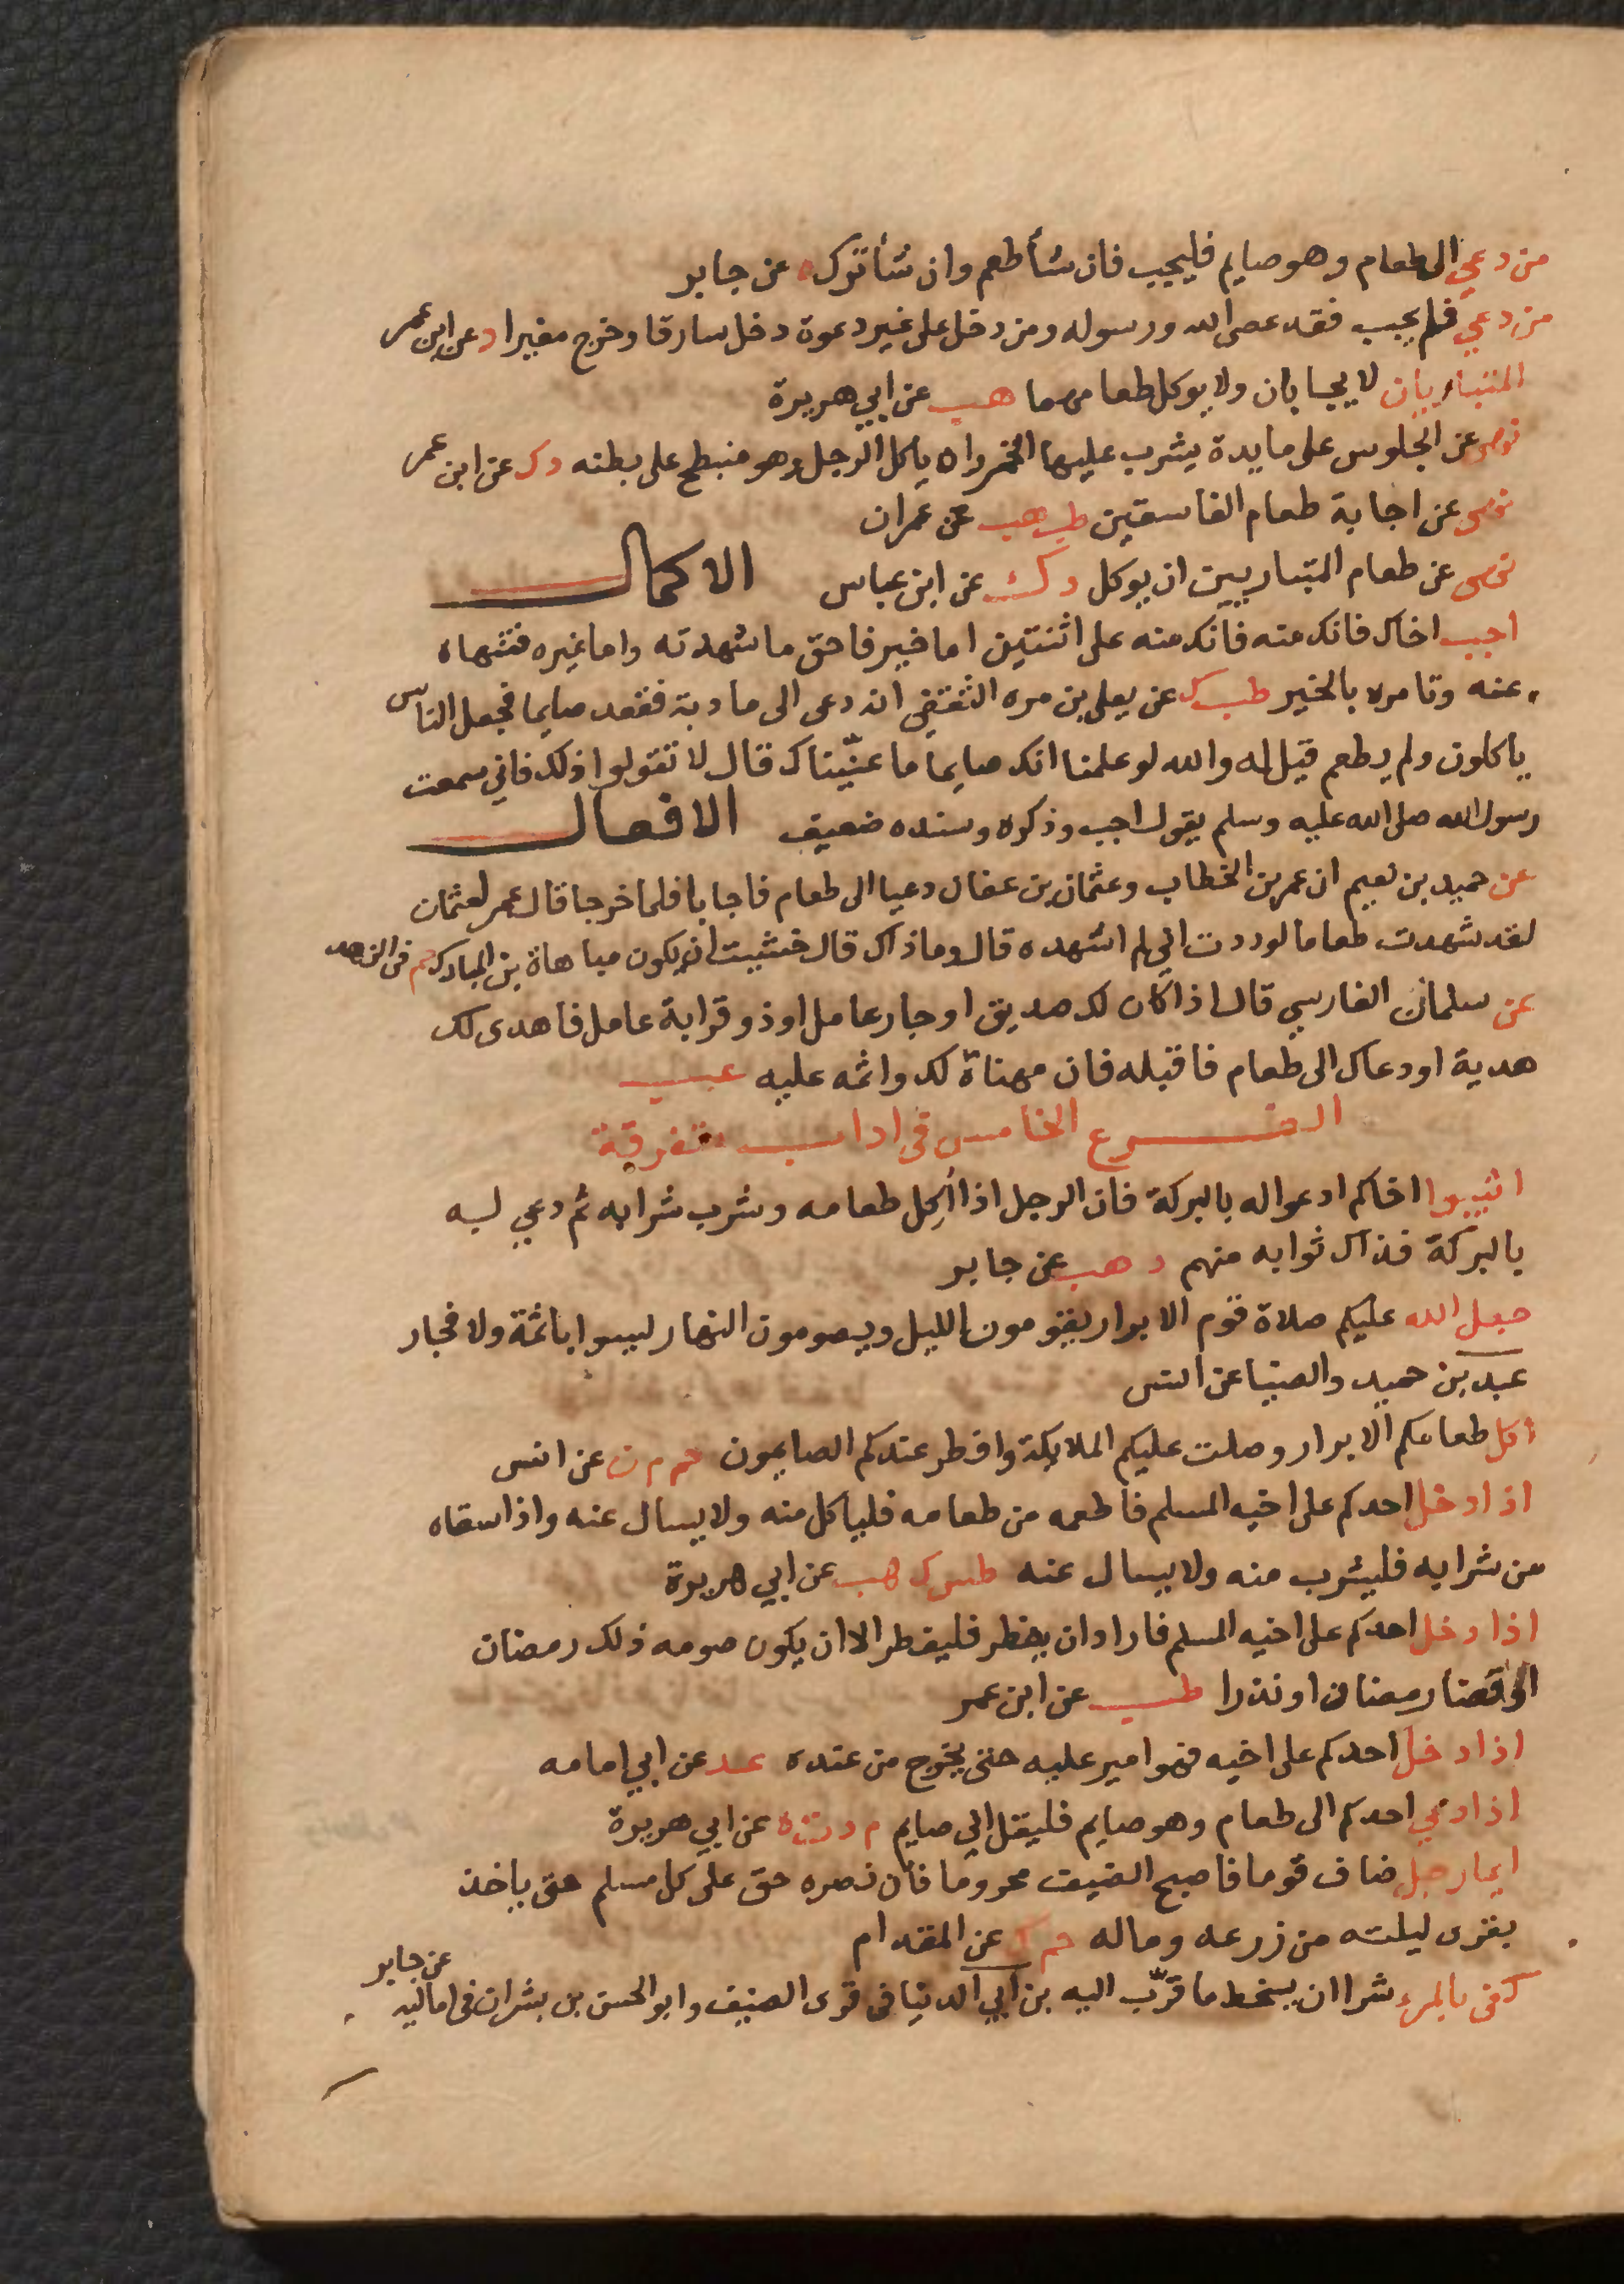 من دعي الى طعام وهو صايم فليجيب فان شأ طعم وان شأ ترك ه عن جابر
من دعي فلم يجيب فقد عصى الله ورسوله ومن دخل على غير دعوة دخل سارقا وخرج مغيرا د عن ابن عمر
المتباريان لا يجابان ولا يوكل طعامهما هب عن ابي هريرة
نهى عن الجلوس على مايدة يشرب عليها الخمر وان ياكل الرجل وهو منبطح على بطنه د ك عن ابن عمر
نهى عن اجابة طعام الفاسقين طب هب عن عمران
نهى عن طعام المتباريين ان يوكل د ك عن ابن عباس الاكمال
اجب اخاك فانك منه فانك منه على اثنتين اما خير فاحق ما شهدته واما غيره فتنهاه
عنه وتامره بالخير طب ك عن يعلى بن مره الثقفي انه دعى الى مادبة فقعد صايما فجعل الناس
ياكلون ولم يطعم قيل له والله لو علمنا انك صايما ما عنيناك قال لا تقولوا ذلك فاني سمعت
رسول الله صلى الله عليه وسلم يقول اجب وذكره وسنده ضعيف الافعال
عن حميد بن نعيم ان عمر بن الخطاب وعثمان بن عفان دعيا الى طعام فاجابا فلما خرجا قال عمر لعثمان
لقد شهدت طعاما لوددت اني لم اشهده قال وما ذاك قال خشيت ان يكون مباهاة بن المبارك حم في الزهد
عن سلمان الفارسي قال اذا كان لك صديق او جار عامل او ذو قرابة عامل فاهدى لك
هدية او دعاك الى طعام فاقبله فان مهناة لك واثمه عليه عب
الفرع الخامس في اداب متفرقة
اثيبوا اخاكم ادعوا له بالبركة فان الرجل اذا أكل طعامه وشرب شرابه ثم دعي ليه
بالبركة فذاك ثوابه منهم د هب عن جابر
جعل الله عليكم صلاة قوم الابرار يقومون الليل ويصومون النهار ليسوا باثمة ولا فجار
عبد بن حميد والضيا عن انس
اكل طعامكم الابرار وصلت عليكم الملايكة وافطر عندكم الصايمون حم م ن عن انس
اذا دخل احدكم على اخيه المسلم فاطعمه من طعامه فلياكل منه ولا يسال عنه واذا سقاه
من شرابه فليشرب منه ولا يسال عنه طس ك هب عن ابي هريرة
اذا دخل احدكم على اخيه المسلم فاراد ان يفطر فليفطر الا ان يكون صومه ذلك رمضان
او قضا رمضان او نذرا طب عن ابن عمر
اذا دخل احدكم على اخيه فهو امير عليه حتى يخرج من عنده عد عن ابي امامه
اذا دعي احدكم الى طعام وهو صايم فليقل اني صايم م د ت ه عن ابي هريرة
ايما رجل ضاف قوما فاصبح الضيف محروما فان نصره حق على كل مسلم حتى ياخذ
بقرى ليلته من زرعه وماله حم ك عن المقدام
كفى بالمرء شرا ان يسخط ما قرّب اليه بن ابي الدنيا في قرى الضيف وابو الحسن بن بشران في اماليه عن جابر